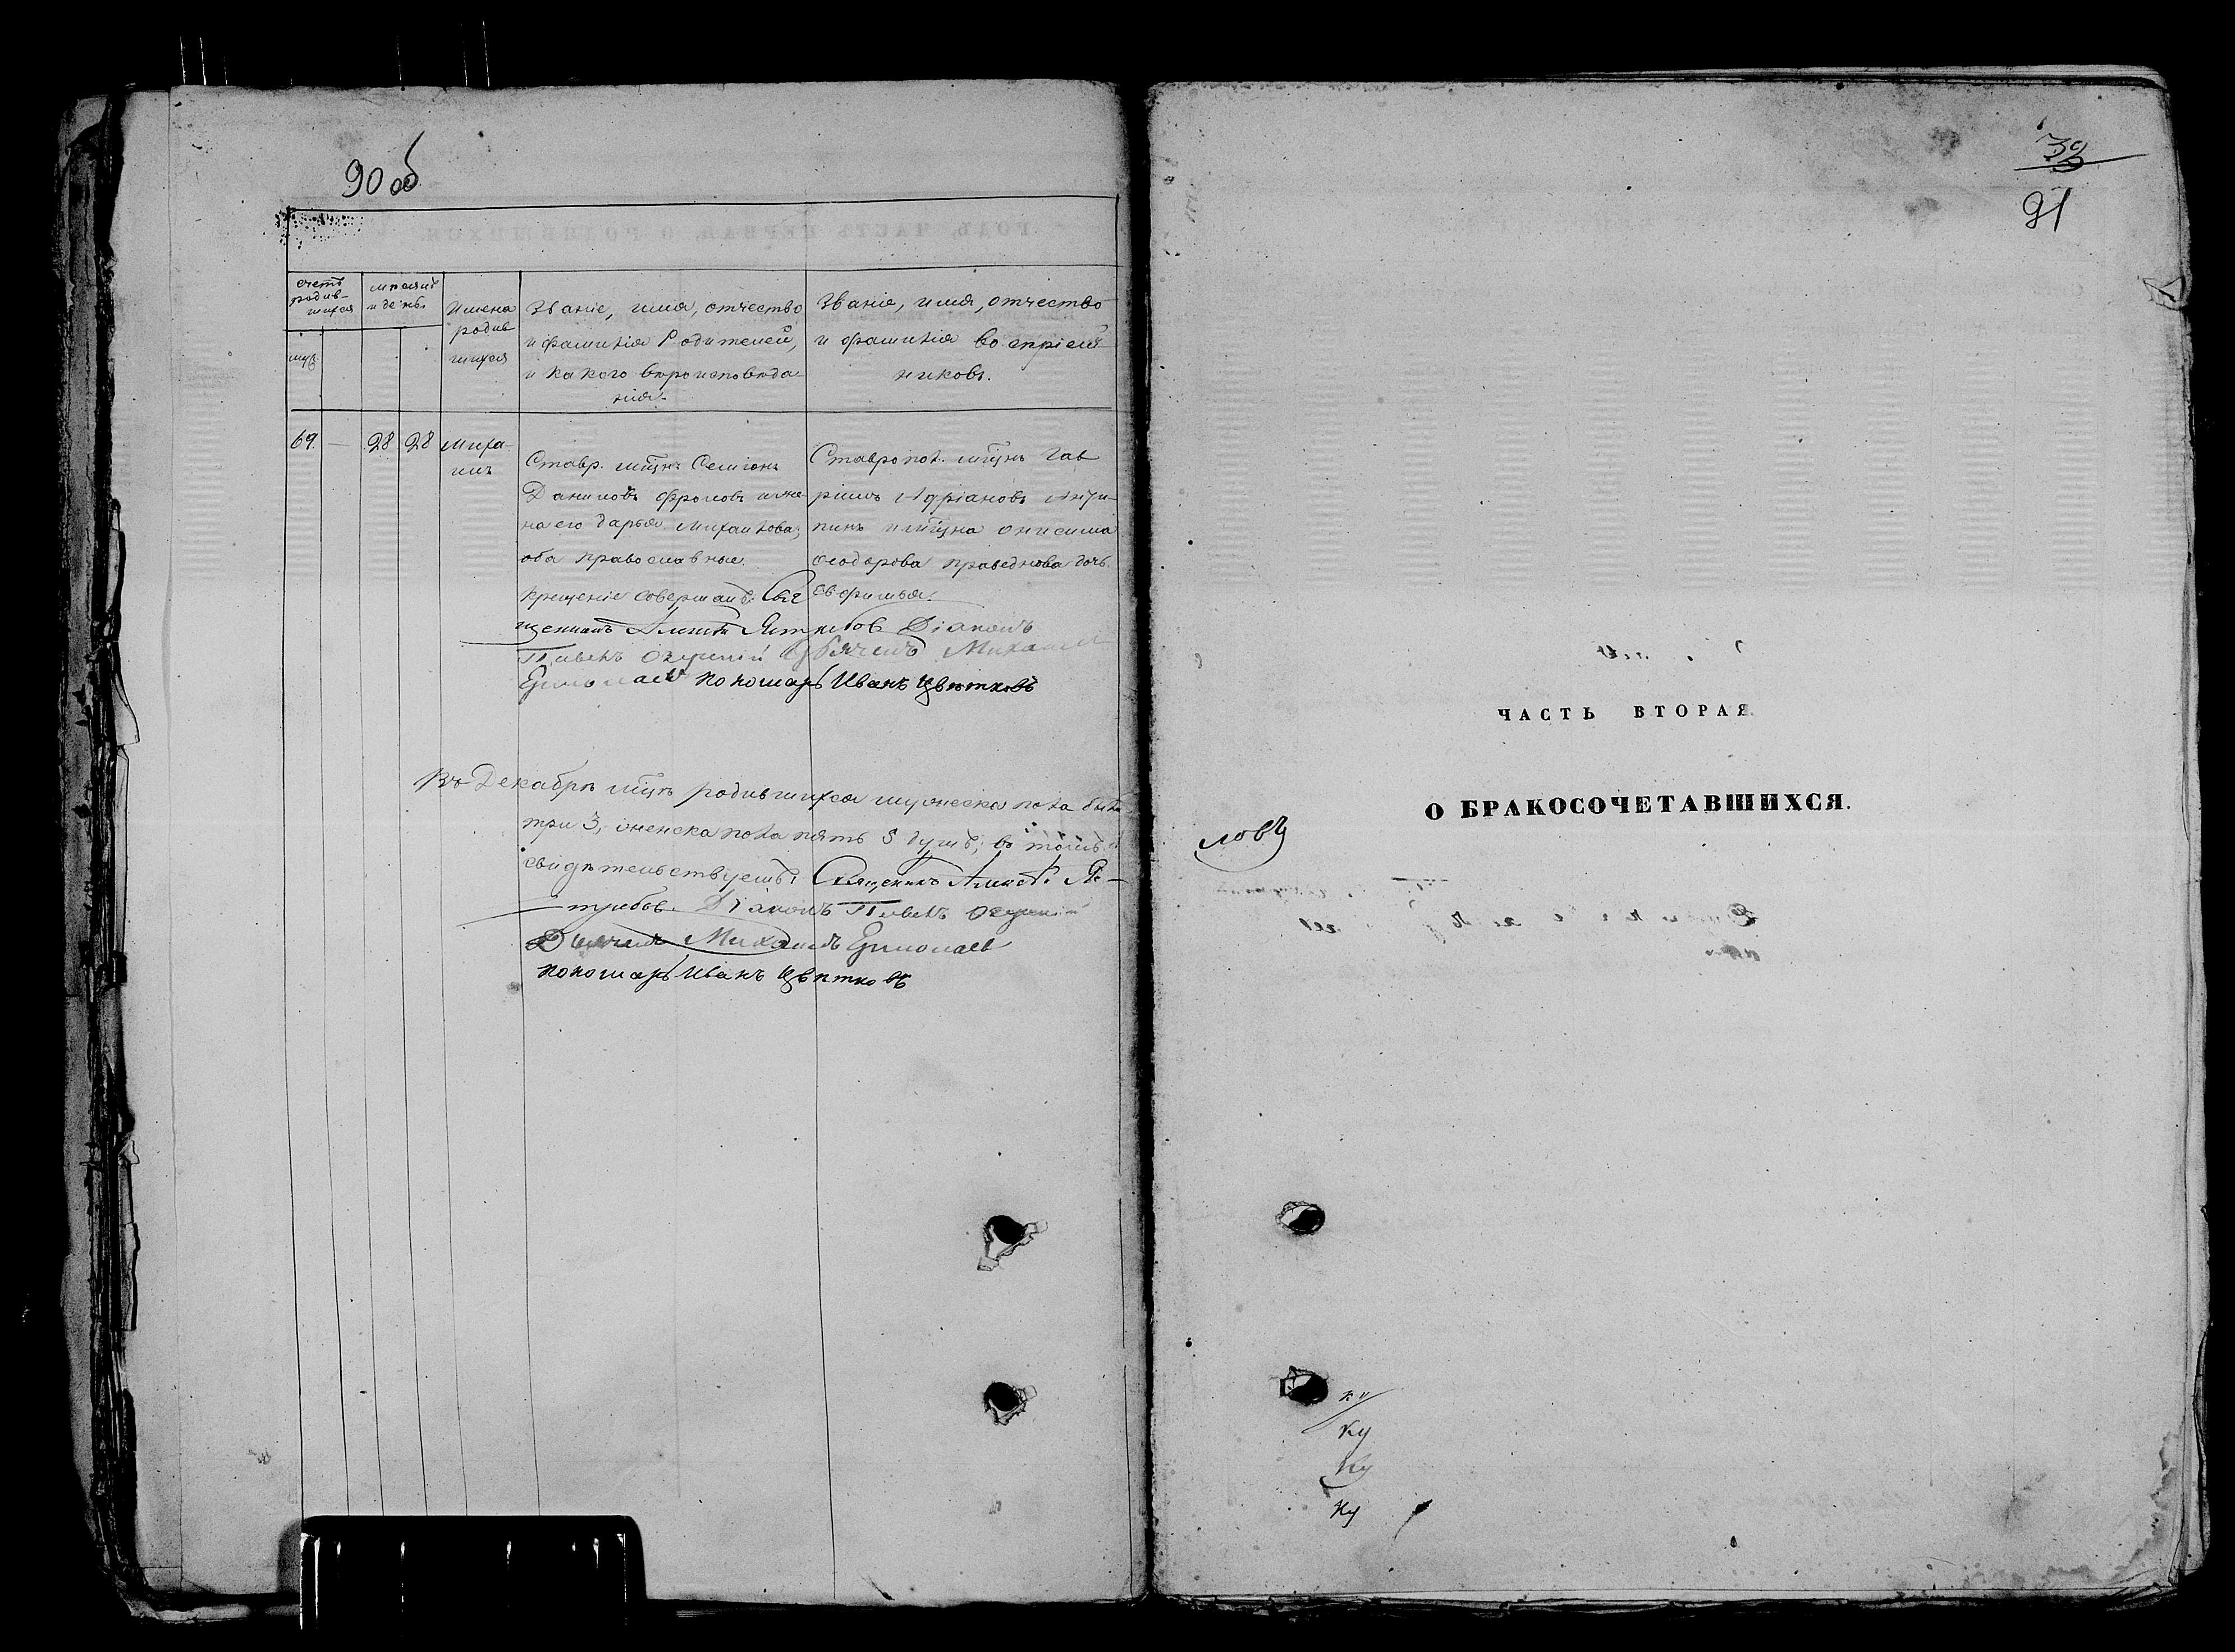 90 об
счетъ родив-шихся
мѣсяцъ и день.
Имена родив шихся
Званіе, имя, отчество и фамилія Родителей, и какого вѣроисповѣда нія.
Званіе, имя, отчество и фамилія воспріем никовъ.
муж.
69. — 28 28 Миха-илъ
Ставр. мѣщ. Семіонъ
Даниловъ Фроловъ и же-
на его Дарья Михаилова,
оба православные.
Крещеніе совершалъ: Свя
щенникъ Ястребов Діаконъ
Михаилъ
пономарь Иванъ Цвѣтковъ
Ставропол. мѣщ. Гав
ріилъ Адріановъ
Онисима
Феодорова праведнова дочь
Евфимья.
Въ Декабрѣ родившихся мужеска пола было
три 3, женска пола пять 5 душъ; въ томъ
свидѣтельствуемъ: Священникъ Яс-
требовъ. Діаконъ
Дьячекъ Михаилъ Ермолаев
пономарь Иванъ Цвѣтковъ
91
ЧАСТЬ ВТОРАЯ.
О БРАКОСОЧЕТАВШИХСЯ.
ловъ
ку
ку
ку
ку